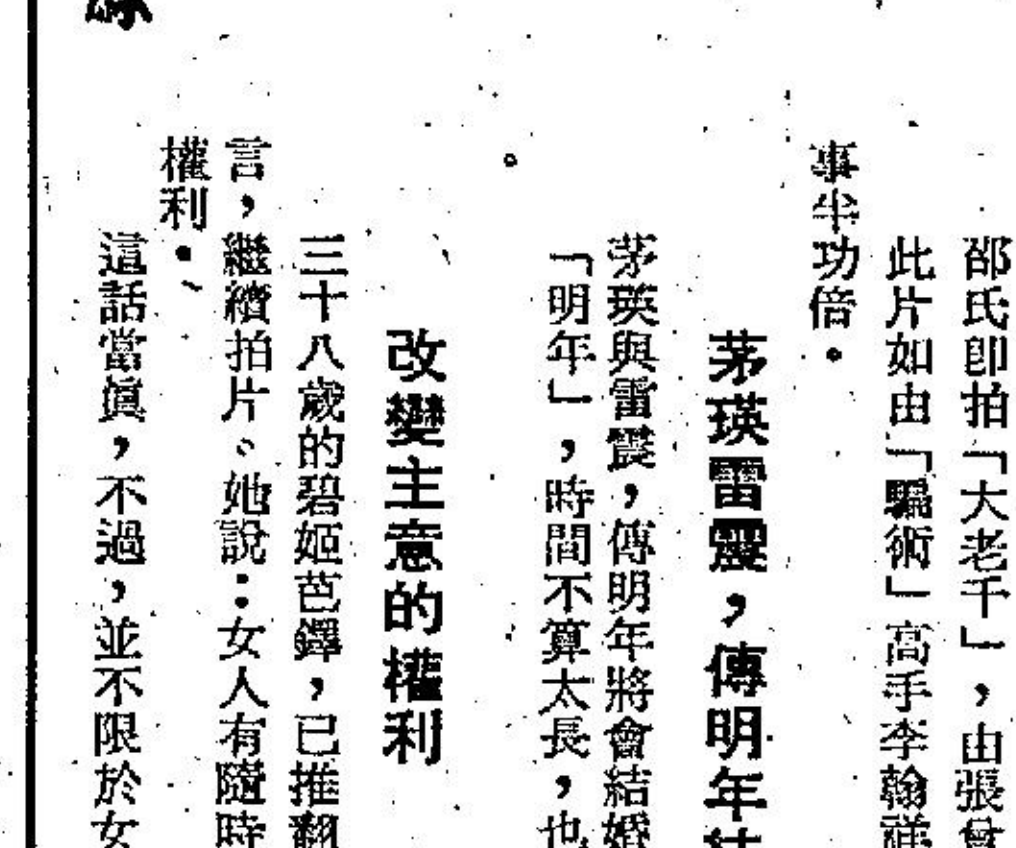 邵氏卽拍「大老千」，由張曾
此片如由「騙術」高手李翰祥
事半功倍。
茅瑛雷震，傳明年結
茅瑛與雷震，傳明年將會結婚
「明年」，時間不算太長，也
。
改變主意的權利
三十八歲的碧姬芭鐸，已推翻
言，繼續拍片。她說：女人有隨時
權利。
這話當眞，不過，並不限於女